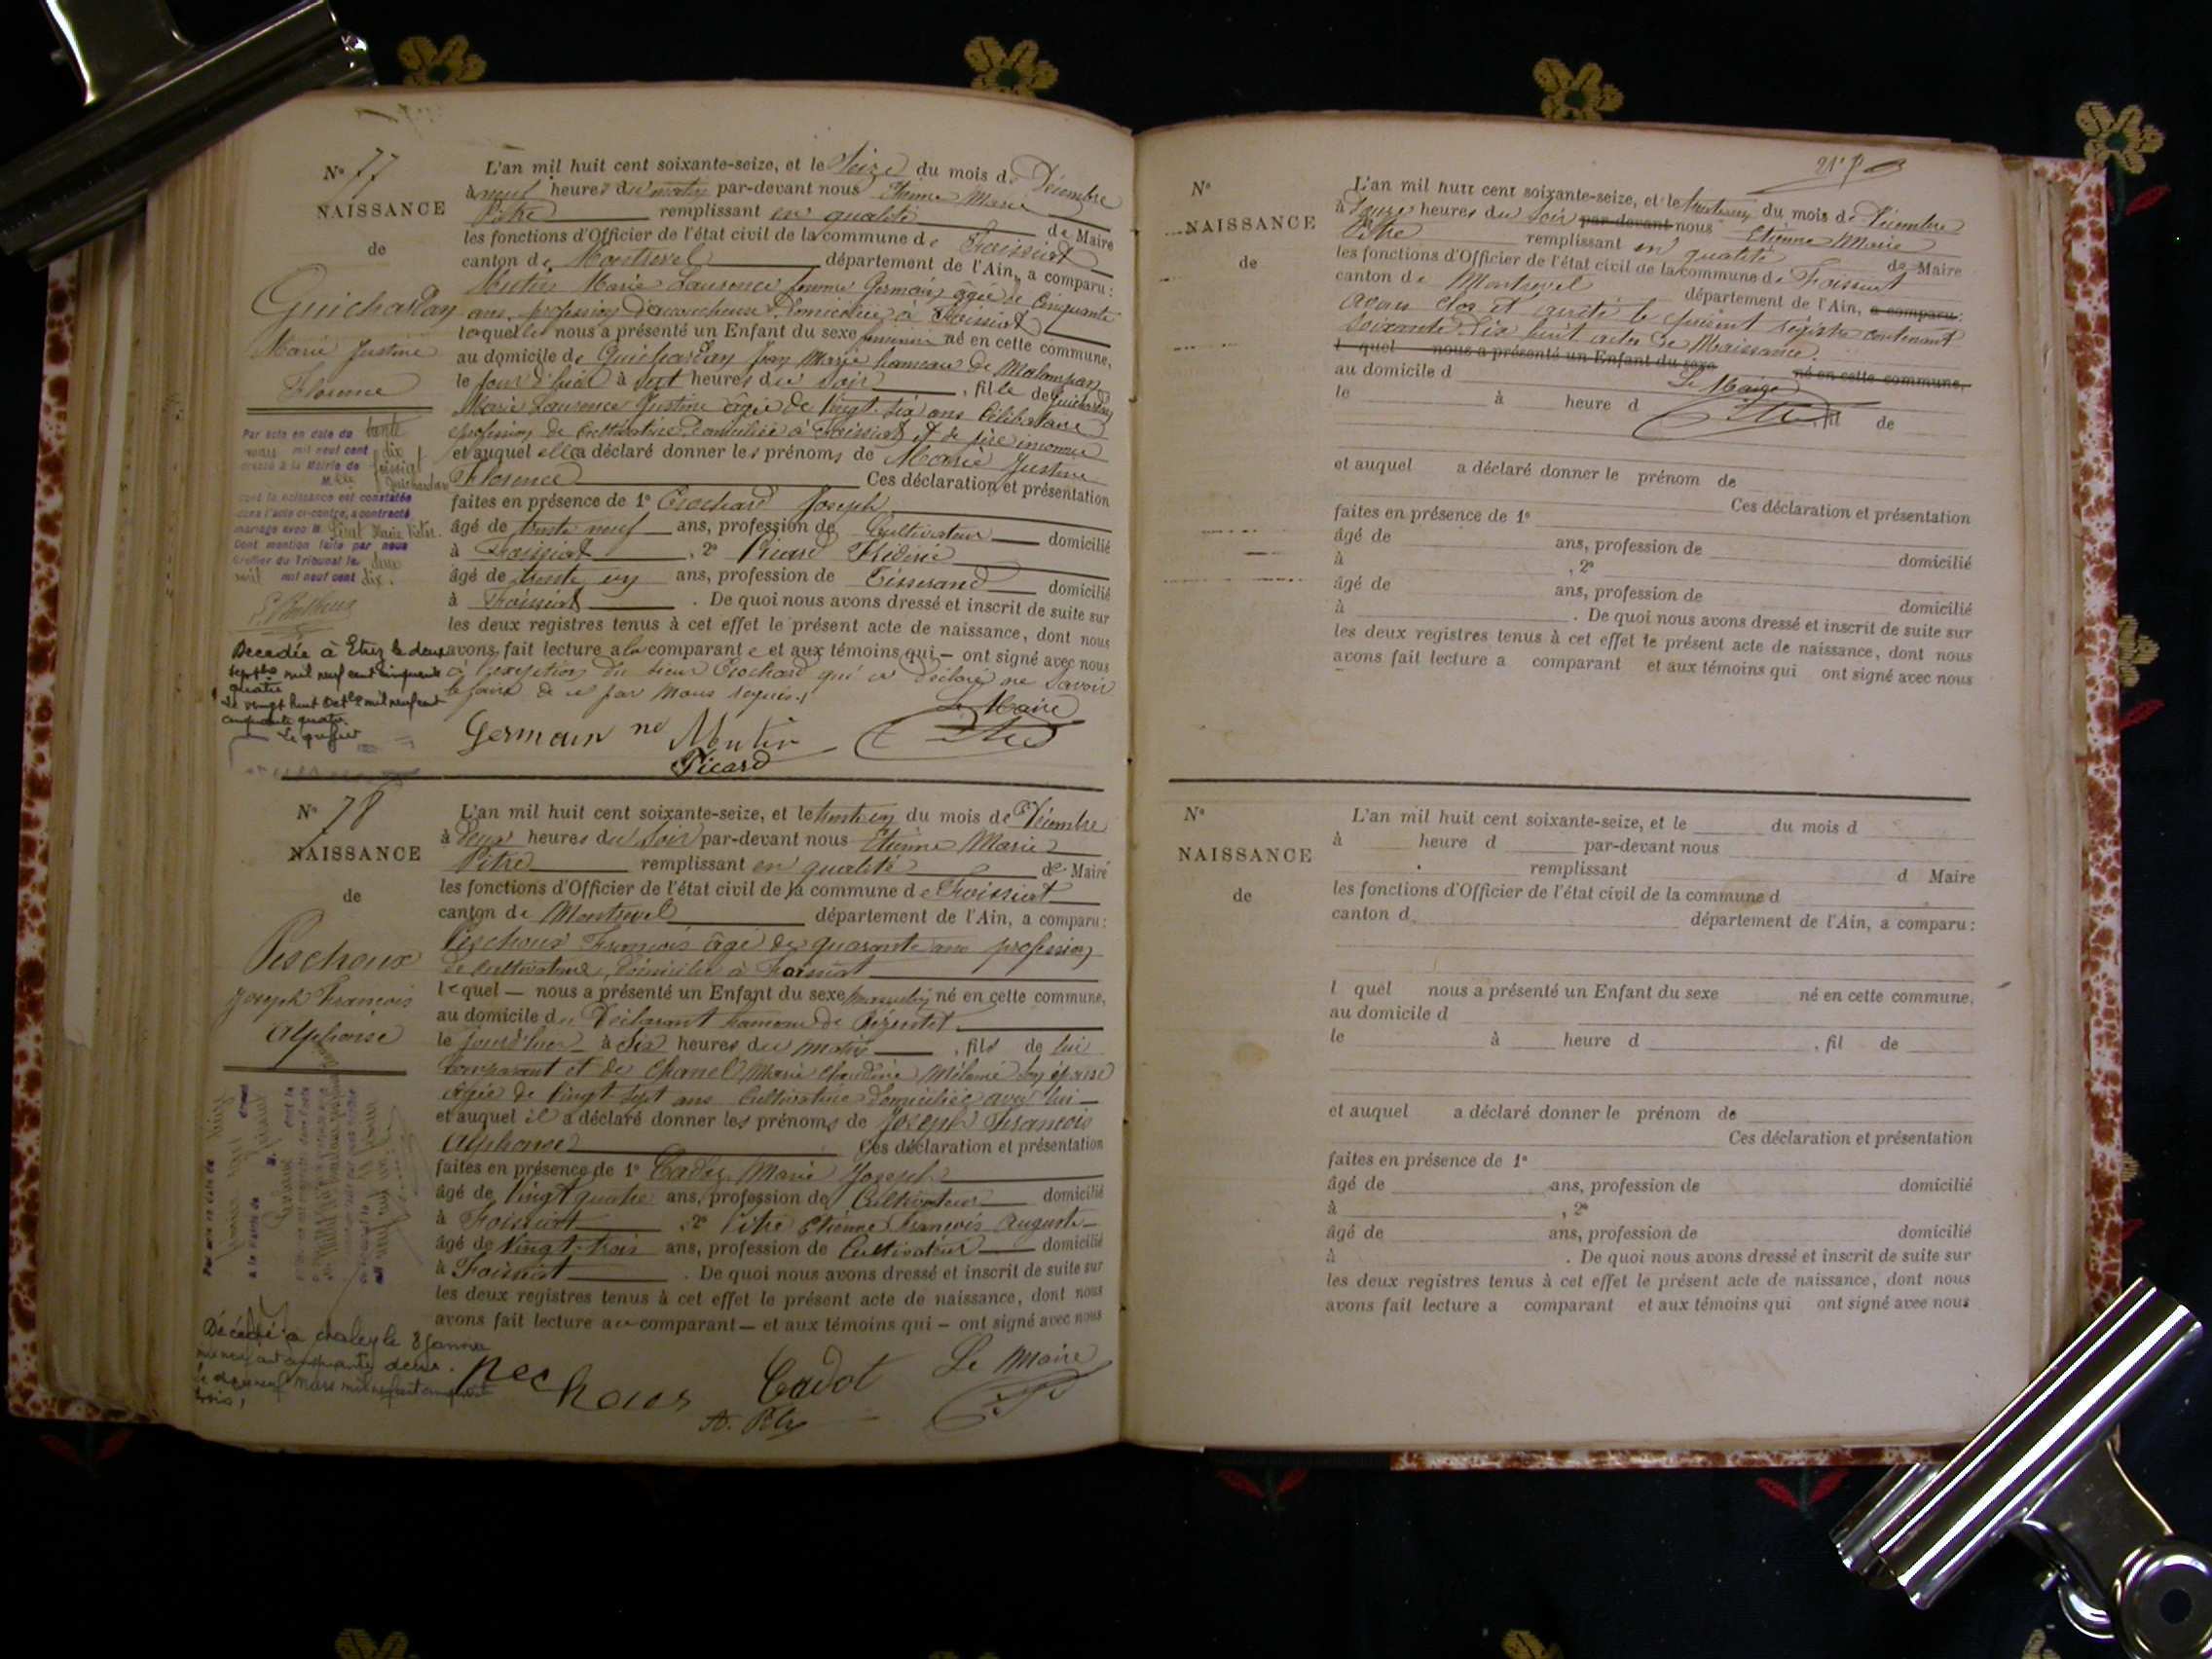 N° 77
NAISSANCE
de
Guichardan
Marie Justine
Florence
Par acte en date du trente
mars mil neuf cent dix
dressé à la Mairie de Foissiat
M. elle Guichardan
dont la naissance est constatée
dans l'acte ci-contre, a contracté
mariage avec M. Marie Victor.
Dont mention faite par nous
Greffier du Tribunal le deux
mil neuf cent dix.
Décédée à Etrez le deux
septbre mil neuf cent cinquante
quatre
Le vingt huit Oct. mil neuf cent
cinquante quatre.
Le greffier
L'an mil huit cent soixante-seize, et le seize du mois de Décembre
à neuf heures du matin par-devant nous Etienne Marie
Pitre remplissant en qualité de Maire
les fonctions d'Officier de l'état civil de la commune de Foissiat
canton de Montrevel département de l'Ain, a comparu:
Mutin Marie Laurence femme Germain âgée de Cinquante
ans, profession d'accoucheuse domiciliée à Foissiat
laquelle nous a présenté un Enfant du sexe féminin né en cette commune,
au domicile de Guichardan Jean Marie hameau de
le jour d'hier à sept heures du soir , fille de Guichardan
Marie Laurence Justine âgée de vingt-six ans Célibataire
profession de Cultivatrice domiciliée à Foissiat et de père inconnu
et auquel elle a déclaré donner les prénoms de Marie Justine
Florence Ces déclaration et présentation
faites en présence de 1° Crochard Joseph
âgé de trente neuf ans, profession de Cultivateur domicilié
à Foissiat , 2° Picard
âgé de trente un ans, profession de Tisserand domicilié
à Foissiat . De quoi nous avons dressé et inscrit de suite sur
les deux registres tenus à cet effet le présent acte de naissance, dont nous
avons fait lecture a la comparante et aux témoins qui — ont signé avec nous
à l'exception du sieur Crochard qui a déclaré ne savoir
le faire de ce par Nous requis.
Le Maire
Germain né Mutin
Picard
N° 78
NAISSANCE
de
Peschoux
Joseph François
Alphonse
Décédé à Chaley le 8 Janvier
mil neuf cent cinquante deux.
Le dix neuf Mars mil neuf cent cinquante
trois,
L'an mil huit cent soixante-seize, et le trente un du mois de Décembre
à Deux heures du soir par-devant nous Etienne Marie
Pitre remplissant en qualité de Maire
les fonctions d'Officier de l'état civil de la commune de Foissiat
canton de Montrevel département de l'Ain, a comparu:
Peschoux François âgé de quarante ans profession
de cultivateur, Domicilié à Foissiat
lequel — nous a présenté un Enfant du sexe masculin né en cette commune,
au domicile du Déclarant hameau de
le jourd'hui à six heures du matin , fils de lui
comparant et de Chanel Marie Claudine Mélanie son épouse
âgée de Vingt-sept ans Cultivatrice domiciliée avec lui —
et auquel il a déclaré donner les prénoms de Joseph François
Alphonse Ces déclaration et présentation
faites en présence de 1° Cadot Marie Joseph
âgé de Vingt quatre ans, profession de Cultivateur domicilié
à Foissiat , 2° Pitre Etienne François Auguste —
âgé de Vingt-trois ans, profession de Cultivateur domicilié
à Foissiat . De quoi nous avons dressé et inscrit de suite sur
les deux registres tenus à cet effet le présent acte de naissance, dont nous
avons fait lecture au comparant — et aux témoins qui — ont signé avec nous
Pechoux Cadot Le Maire
N°
NAISSANCE
de
L'an mil huit cent soixante-seize, et le trente un du mois de Décembre
à douze heures du soir par-devant nous Etienne Marie
Pitre remplissant en qualité de Maire
les fonctions d'Officier de l'état civil de la commune de Foissiat
canton de Montrevel département de l'Ain, a comparu:
avons clos et arrêté le présent registre contenant
soixante dix huit actes de Naissance.
l quel nous a présenté un Enfant du sexe né en cette commune,
au domicile d Le Maire
le à heure d , fil de
et auquel a déclaré donner le prénom de
Ces déclaration et présentation
faites en présence de 1°
âgé de ans, profession de domicilié
à , 2°
âgé de ans, profession de domicilié
à . De quoi nous avons dressé et inscrit de suite sur
les deux registres tenus à cet effet le présent acte de naissance, dont nous
avons fait lecture a comparant et aux témoins qui ont signé avec nous
N°
NAISSANCE
de
L'an mil huit cent soixante-seize, et le du mois d
à heure d par-devant nous
remplissant d Maire
les fonctions d'Officier de l'état civil de la commune d
canton d département de l'Ain, a comparu:
l quel nous a présenté un Enfant du sexe né en cette commune,
au domicile d
le à heure d , fil de
et auquel a déclaré donner le prénom de
Ces déclaration et présentation
faites en présence de 1°
âgé de ans, profession de domicilié
à , 2°
âgé de ans, profession de domicilié
à . De quoi nous avons dressé et inscrit de suite sur
les deux registres tenus à cet effet le présent acte de naissance, dont nous
avons fait lecture a comparant et aux témoins qui ont signé avec nous